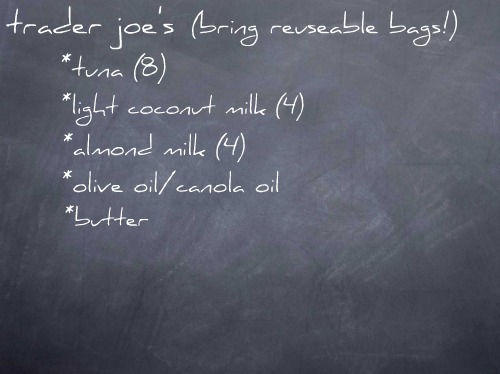 trader joe's (bring reuseable bags!)
*tuna (8)
*light coconut milk (4)
*almond milk (4)
*olive oil/canola oil
*butter